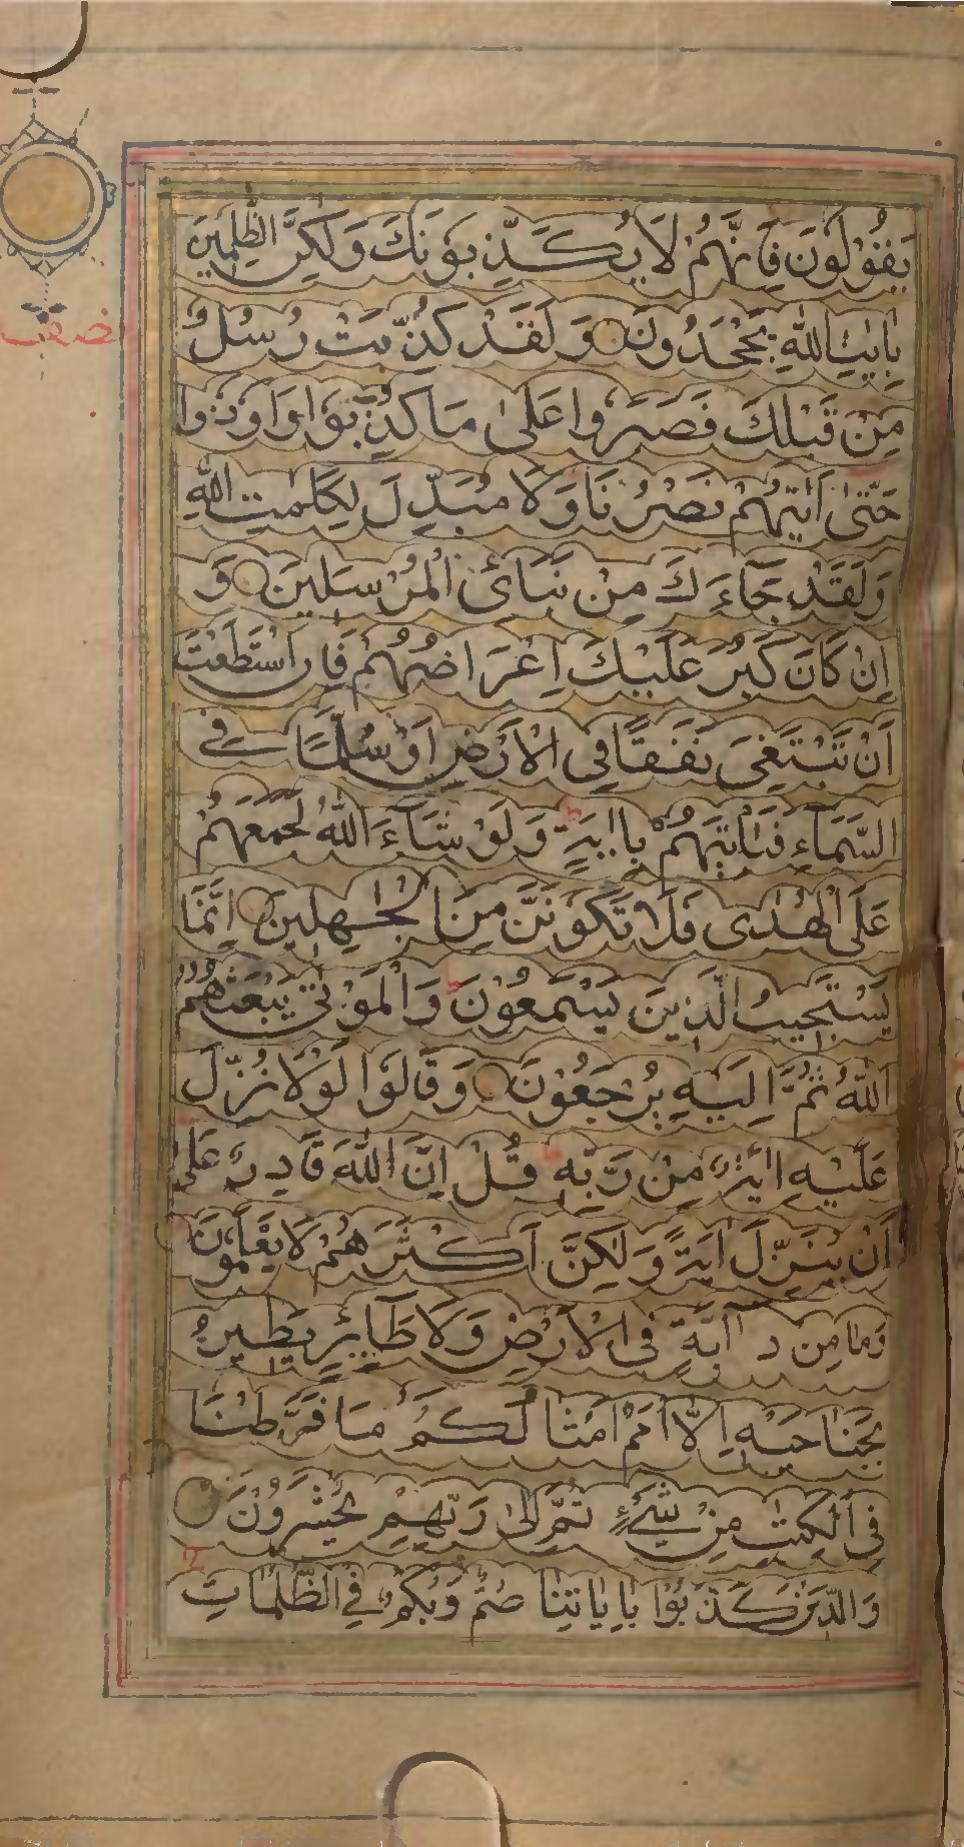 يَقُوْلُوْنَ فَاِنَّهُمْ لَا يُكَذِّبُوْنَكَ وَلٰكِنَّ الظّٰلِمِيْنَ
بِاٰيٰتِ اللّٰهِ يَجْحَدُوْنَ وَلَقَدْ كُذِّبَتْ رُسُلٌ
مِنْ قَبْلِكَ فَصَبَرُوا عَلٰى مَا كُذِّبُوْا وَاُوذُوا
حَتّٰى اَتٰىهُمْ نَصْرُنَا وَلَا مُبَدِّلَ لِكَلِمٰتِ اللّٰهِ
وَلَقَدْ جَآءَكَ مِنْ نَبَائِ الْمُرْسَلِيْنَ وَ
اِنْ كَانَ كَبُرَ عَلَيْكَ اِعْرَاضُهُمْ فَاِنِ اسْتَطَعْتَ
اَنْ تَبْتَغِيَ نَفَقًا فِى الْاَرْضِ اَوْ سُلَّمًا فِى
السَّمَآءِ فَتَاْتِيَهُمْ بِاٰيَةٍ وَلَوْ شَآءَ اللّٰهُ لَجَمَعَهُمْ
عَلَى الْهُدٰى فَلَا تَكُوْنَنَّ مِنَ الْجٰهِلِيْنَ اِنَّمَا
يَسْتَجِيْبُ الَّذِيْنَ يَسْمَعُوْنَ وَالْمَوْتٰى يَبْعَثُهُمُ
اللّٰهُ ثُمَّ اِلَيْهِ يُرْجَعُوْنَ وَقَالُوْا لَوْلَا نُزِّلَ
عَلَيْهِ اٰيَةٌ مِنْ رَبِّهٖ قُلْ اِنَّ اللّٰهَ قَادِرٌ عَلٰى
اَنْ يُنَزِّلَ اٰيَةً وَلٰكِنَّ اَكْثَرَهُمْ لَا يَعْلَمُوْنَ
وَمَا مِنْ دَآبَّةٍ فِى الْاَرْضِ وَلَا طَآئِرٍ يَطِيْرُ
بِجَنَاحَيْهِ اِلَّا اُمَمٌ اَمْثَالُكُمْ مَا فَرَّطْنَا
فِى الْكِتٰبِ مِنْ شَيْءٍ ثُمَّ اِلٰى رَبِّهِمْ يُحْشَرُوْنَ
وَالَّذِيْنَ كَذَّبُوْا بِاٰيَاتِنَا صُمٌّ وَبُكْمٌ فِى الظُّلُمَاتِ